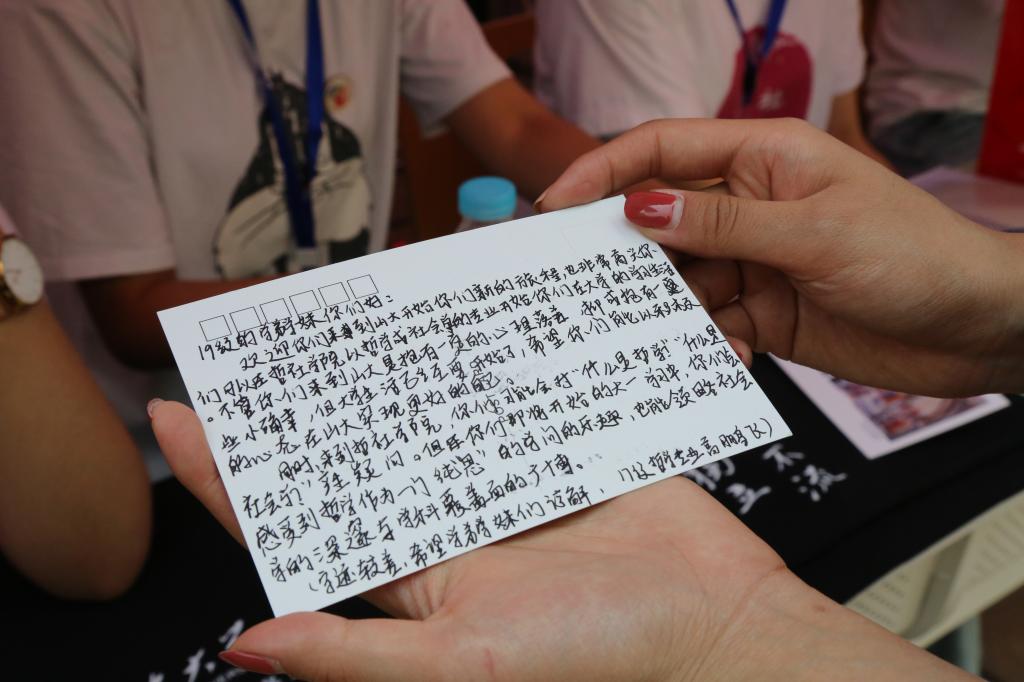 19级的学弟妹你们好:
欢迎你们来到山大开始你们新的旅程,也非常高兴你
们可以在哲社学院以哲学或社会学的专业开始你们在大学的学习生活
。不管你们来到山大是抱有一定的心理落差,抑或抱有一些
些小确幸,但大学生活已经开始了,希望你们能以积极
的心态在山大实现更好的自己。
同时,来到哲社学院,你们可能会对“什么是哲学”“什么是
社会学”产生疑问。但在你们即将开始的大一学年,你们会
感受到哲学作为一门“纯思”的学问的乐趣,也能会领略社会
学的深邃与学科覆盖面的广博。
(字迹较差,希望学弟学妹们谅解 17级哲社高鹏飞)
不流